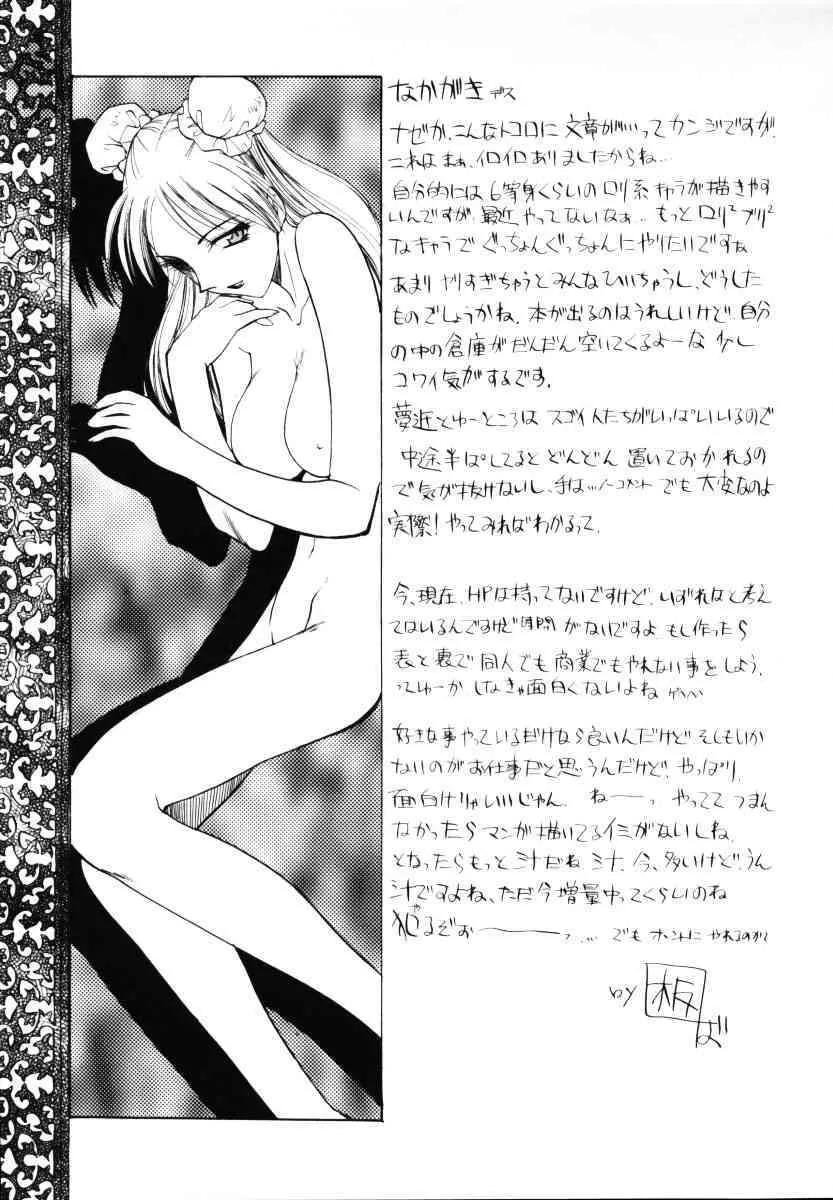 なかがきデス
ナゼか、こんなトコロに文章がいってカンジですが、
これはまぁ、イロイロありましたからね…
自分的には6等身くらいのロリ系キャラが描きやす
いんですが、最近やってないなぁ‥もっとロリ²プリ²
なキャラでぐっちょんぐっちょんにやりたいですね
あまりやりすぎちゃうとみんなひいちゃうし、どうした
ものでしょうかね。本が出るのはうれしいけど自分
の中の倉庫がだんだん空いてくるよーな少し
コワイ気がするです。
夢近とゆーところはスゴイ人たちがいっぱいいるので
中途半ぱしてるとどんどん置いておかれるの
で気が抜けないし、手は…ノーコメントでも大変なのよ
実際!やってみればわかるって。
今、現在、HPは持ってないですけど、いずれはと考え
てはいるんですけど時間がないですよもし作ったら
表と裏で同人でも商業でもやれない事をしよう。
ってゆーかしなきゃ面白くないよね
好きな事やっているだけなら良いんだけど、そしもいか
ないのがお仕事だと思うんだけど、やっぱり、
面白けりゃいいじゃん。ねーっやっててつまん
なかったらマンガ描いてるイミがないしね。
となったらもっと汁だね汁。今、多いけど、うん
汁ですよね、ただ今増量中ってくらいのね
犯るぞぉーっ…。でもホントにやれるのか?
by 板ば